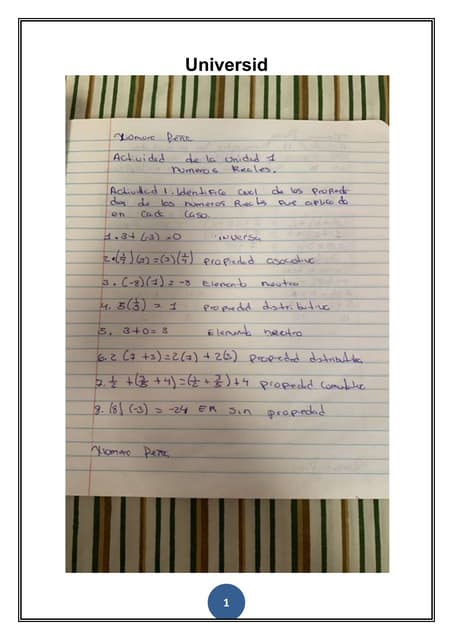 Universid
Xiomara Pérez
Actividad de la unidad 1
numeros Reales.
Actividad 1. Identifica cual de las propieda
des de los numeros Reales fue aplicada
en cada caso.
1. 3+ (-3) = 0 inversa
2. (1/4) (7) = (7) (1/4) propiedad asociativa
3. (-8)(1) = -8 Elemento neutro
4. 5(1/5) = 1 propiedad distributiva
5. 3+0=3 Elemento neutro
6. 2 (7 +3)=2(7) + 2(3) propiedad distributiva
7. 1/2 + (+ 4) = (1/2 + ) + 4 propiedad conmutativa
8. (8) (-3) = -24 Sin propiedad
Xiomara Pérez
1